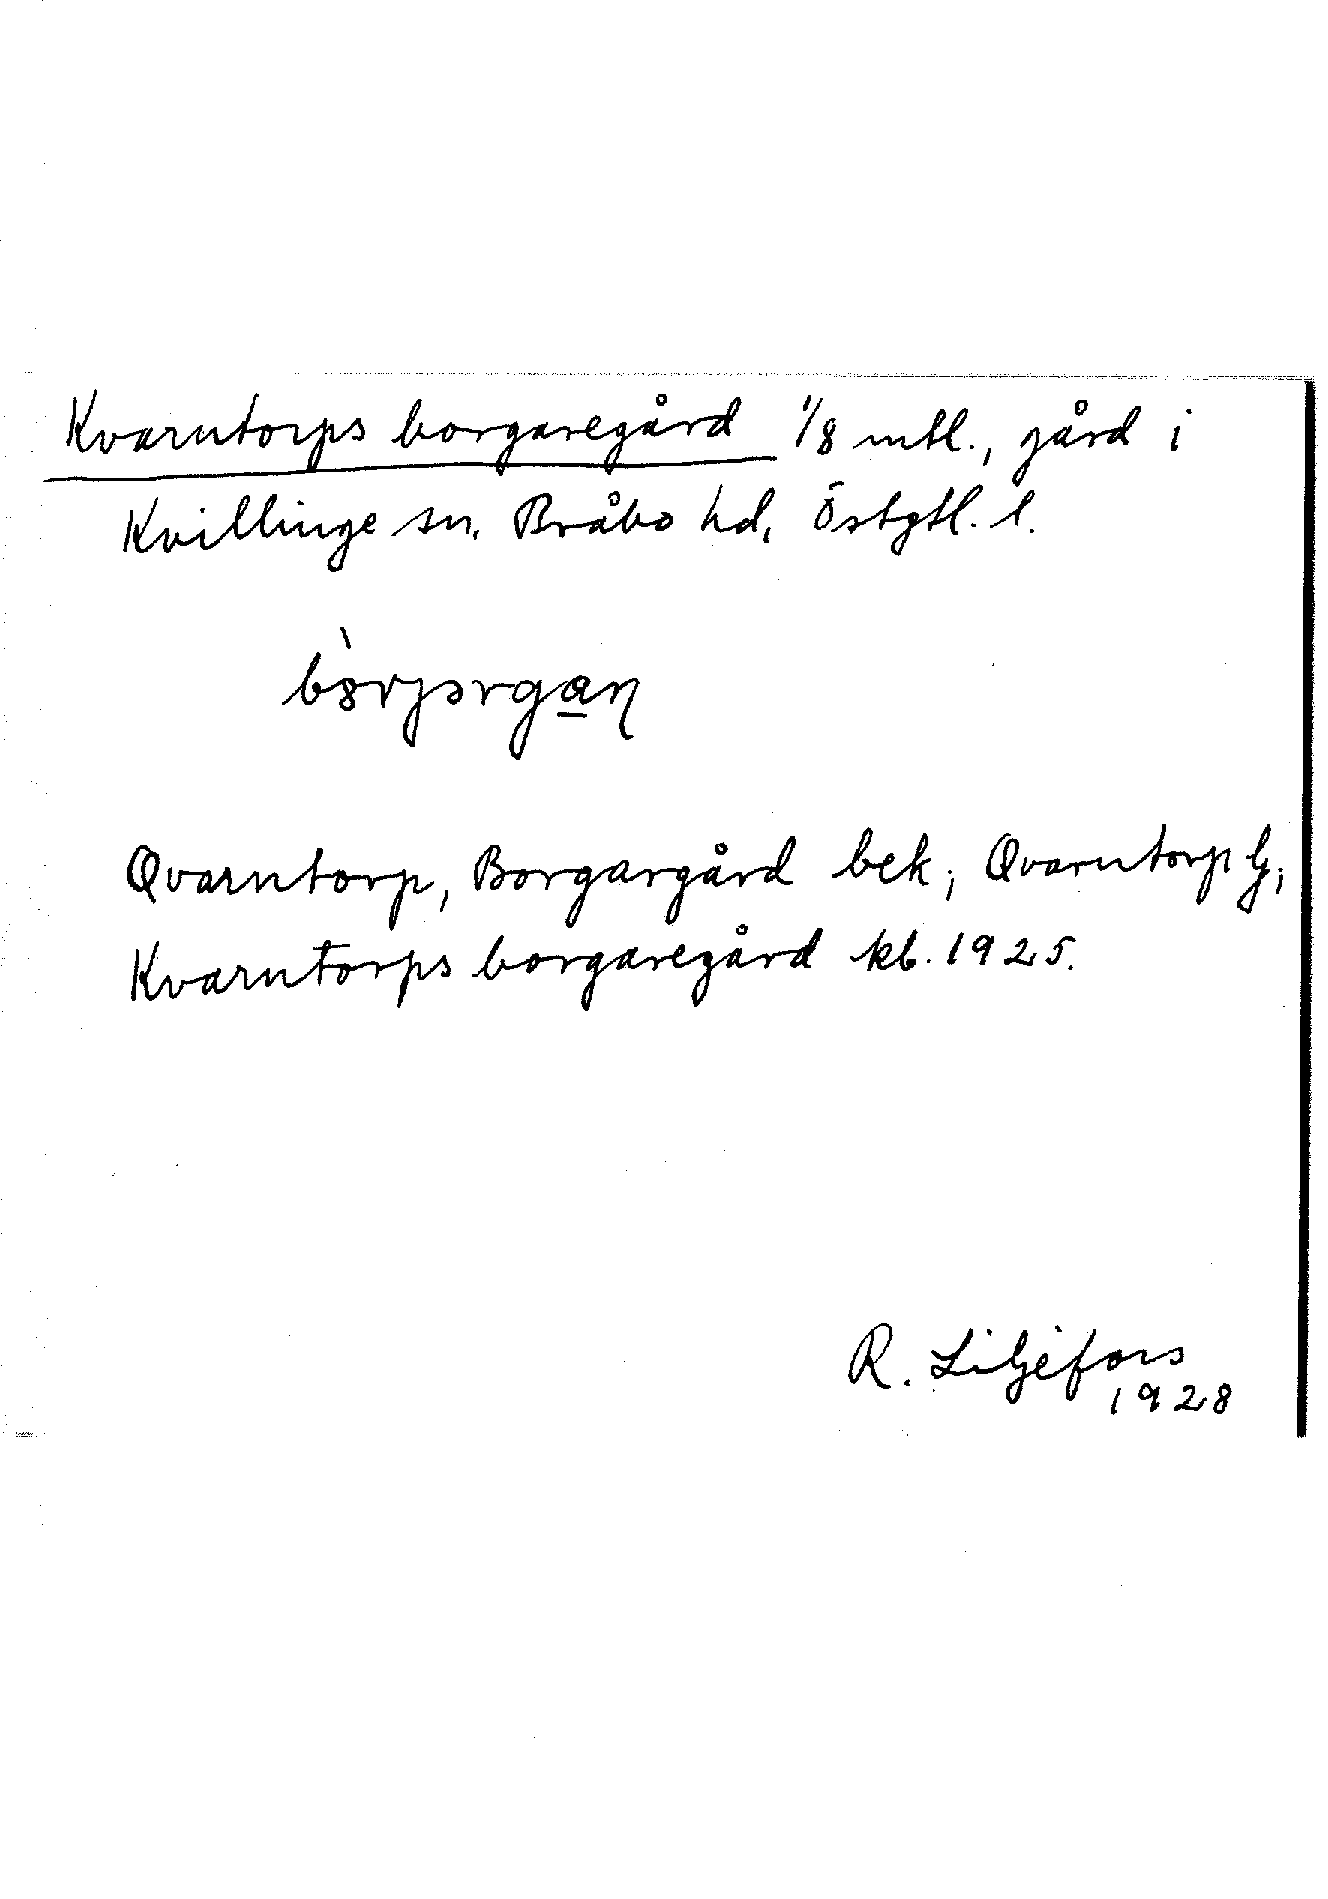 Kvarntorps borgaregård 1/8 mtl., gård i
Kvillinge sn, Bråbo hd, Östgtl. l.
Qvarntorp, Borgargård bek; Qvarntorp lj;
Kvarntorps borgaregård kb. 1925.
R. Liljefors
1928